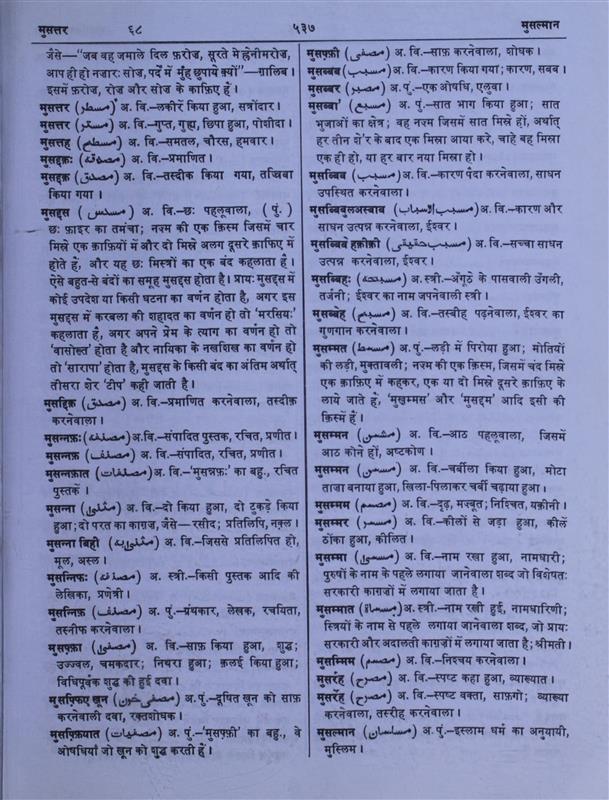 मुसत्तर ६८ ५३७ मुसल्मान
जैसे—“जब वह जमाले दिल फ़रोज, सूरते मेह्रेनीमरोज,
आप ही हो नज़ारः सोज, पर्दे में मुँह छुपाये क्यों”—ग़ालिब।
इसमें फ़रोज, रोज और सोज के काफ़िए हैं।
मुसत्तर (مسطر) अ. वि.–लकीरें किया हुआ, सत्रोंदार।
मुसत्तर (مستر) अ. वि.–गुप्त, गुह्य, छिपा हुआ, पोशीदा।
मुसत्तह (مسطح) अ. वि.–समतल, चौरस, हमवार।
मुसद्दक़ः (مصدقه) अ. वि.–प्रमाणित।
मुसद्दक़ (مصدق) अ. वि.–तस्दीक़ किया गया, तज्रिबा
किया गया।
मुसद्दस (مسدس) अ. वि.–छः पहलूवाला, (पुं.)
छः फ़ाइर का तमंचा; नज़्म की एक क़िस्म जिसमें चार
मिस्रे एक क़ाफ़ियों में और दो मिस्रे अलग दूसरे क़ाफ़िए में
होते हैं, और यह छः मिस्त्रों का एक बंद कहलाता है।
ऐसे बहुत-से बंदों का समूह मुसद्दस होता है। प्रायः मुसद्दस में
कोई उपदेश या किसी घटना का वर्णन होता है, अगर इस
मुसद्दस में करबला की शहादत का वर्णन हो तो ‘मरसियः’
कहलाता है, अगर अपने प्रेम के त्याग का वर्णन हो तो
‘वासोख़्त’ होता है और नायिका के नखशिख का वर्णन हो
तो ‘सारापा’ होता है, मुसद्दस के किसी बंद का अंतिम अर्थात्
तीसरा शेर ‘टीप’ कही जाती है।
मुसद्दिक़ (مصدق) अ. वि.–प्रमाणित करनेवाला, तस्दीक़
करनेवाला।
मुसन्नफ़ः (مصنفه) अ. वि.–संपादित पुस्तक, रचित, प्रणीत।
मुसन्नफ़ (مصنف) अ. वि.–संपादित, रचित, प्रणीत।
मुसन्नफ़ात (مصنفات) अ. वि.–‘मुसन्नफ़ः’ का बहु., रचित
पुस्तकें।
मुसन्ना (مثنى) अ. वि.–दो किया हुआ, दो टुकड़े किया
हुआ; दो परत का काग़ज़, जैसे—रसीद; प्रतिलिपि, नक़्ल।
मुसन्ना बिही (مثنى به) अ. वि.–जिससे प्रतिलिपित हो,
मूल, अस्ल।
मुसन्निफ़ः (مصنفه) अ. स्त्री.–किसी पुस्तक आदि की
लेखिका, प्रणेत्री।
मुसन्निफ़ (مصنف) अ. पुं.–ग्रंथकार, लेखक, रचयिता,
तस्नीफ़ करनेवाला।
मुसफ़्फ़ा (مصفى) अ. वि.–साफ़ किया हुआ, शुद्ध;
उज्ज्वल, चमकदार; निथरा हुआ; क़लई किया हुआ;
विधिपूर्वक शुद्ध की हुई दवा।
मुसफ़्फ़िए ख़ून (مصفى خون) अ. पुं.–दूषित ख़ून को साफ़
करनेवाली दवा, रक्तशोधक।
मुसफ़्फ़ियात (مصفيات) अ. पुं.–‘मुसफ़्फ़ी’ का बहु., वे
ओषधियाँ जो ख़ून को शुद्ध करती हैं।
मुसफ़्फ़ी (مصفى) अ. वि.–साफ़ करनेवाला, शोधक।
मुसब्बब (مسبب) अ. वि.–कारण किया गया; कारण, सबब।
मुसब्बर (مصبر) अ. पुं.–एक ओषधि, एलुवा।
मुसब्बा’ (مسبع) अ. पुं.–सात भाग किया हुआ; सात
भुजाओं का क्षेत्र; वह नज़्म जिसमें सात मिस्रे हों, अर्थात्
हर तीन शे’र के बाद एक मिस्रा आया करे, चाहे वह मिस्रा
एक ही हो, या हर बार नया मिस्रा हो।
मुसब्बिब (مسبب) अ. वि.–कारण पैदा करनेवाला, साधन
उपस्थित करनेवाला।
मुसब्बिबुलअस्बाब (مسبب الاسباب) अ. वि.–कारण और
साधन उत्पन्न करनेवाला, ईश्वर।
मुसब्बिबे हक़ीक़ी (مسبب حقيقى) अ. वि.–सच्चा साधन
उत्पन्न करनेवाला, ईश्वर।
मुसब्बिहः (مسبحه) अ. स्त्री.–अँगूठे के पासवाली उँगली,
तर्जनी; ईश्वर का नाम जपनेवाली स्त्री।
मुसब्बेह (مسبح) अ. वि.–तस्बीह पढ़नेवाला, ईश्वर का
गुणगान करनेवाला।
मुसम्मत (مسمط) अ. पुं.–लड़ी में पिरोया हुआ; मोतियों
की लड़ी, मुक्तावली; नज़्म की एक क़िस्म, जिसमें चंद मिस्रे
एक क़ाफ़िए में कहकर, एक या दो मिस्रे दूसरे क़ाफ़िए के
लाये जाते हैं, ‘मुख़म्मस’ और ‘मुसद्दस’ आदि इसी की
क़िस्में हैं।
मुसम्मन (مثمن) अ. वि.–आठ पहलूवाला, जिसमें
आठ कोने हों, अष्टकोण।
मुसम्मन (مسمن) अ. वि.–चर्बीला किया हुआ, मोटा
ताजा बनाया हुआ, खिला-पिलाकर चर्बी चढ़ाया हुआ।
मुसम्मम (مصمم) अ. वि.–दृढ़, मज़्बूत; निश्चित, यक़ीनी।
मुसम्मर (مسمر) अ. वि.–कीलों से जड़ा हुआ, कीलें
ठोंका हुआ, कीलित।
मुसम्मा (مسمى) अ. वि.–नाम रखा हुआ, नामधारी;
पुरुषों के नाम के पहले लगाया जानेवाला शब्द जो विशेषतः
सरकारी काग़ज़ों में लगाया जाता है।
मुसम्मात (مسماة) अ. स्त्री.–नाम रखी हुई, नामधारिणी;
स्त्रियों के नाम से पहले लगाया जानेवाला शब्द, जो प्रायः
सरकारी और अदालती काग़ज़ों में लगाया जाता है; श्रीमती।
मुसम्मिम (مصمم) अ. वि.–निश्चय करनेवाला।
मुसर्रह (مصرح) अ. वि.–स्पष्ट कहा हुआ, व्याख्यात।
मुसर्रेह (مصرح) अ. पुं.–स्पष्ट वक्ता, साफ़गो; व्याख्या
करनेवाला, तस्रीह करनेवाला।
मुसल्मान (مسلمان) अ. पुं.–इस्लाम धर्म का अनुयायी,
मुस्लिम।